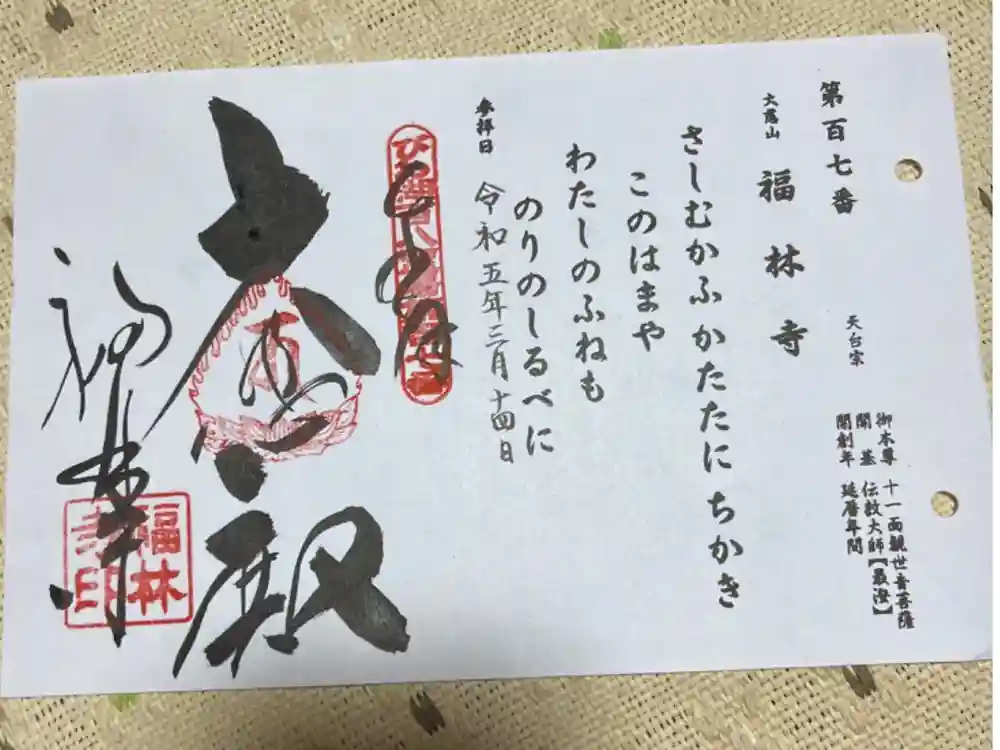 第百七番
大慈山 福林寺 天台宗
御本尊 十一面観世音菩薩
開基 伝教大師【最澄】
開創年 延暦年間
さしむかふ かたたに ちかき
このはまや
わたしのふねも
のりのしるべに
参拝日 令和五年三月十四日
大悲殿
福林寺
福林
寺印